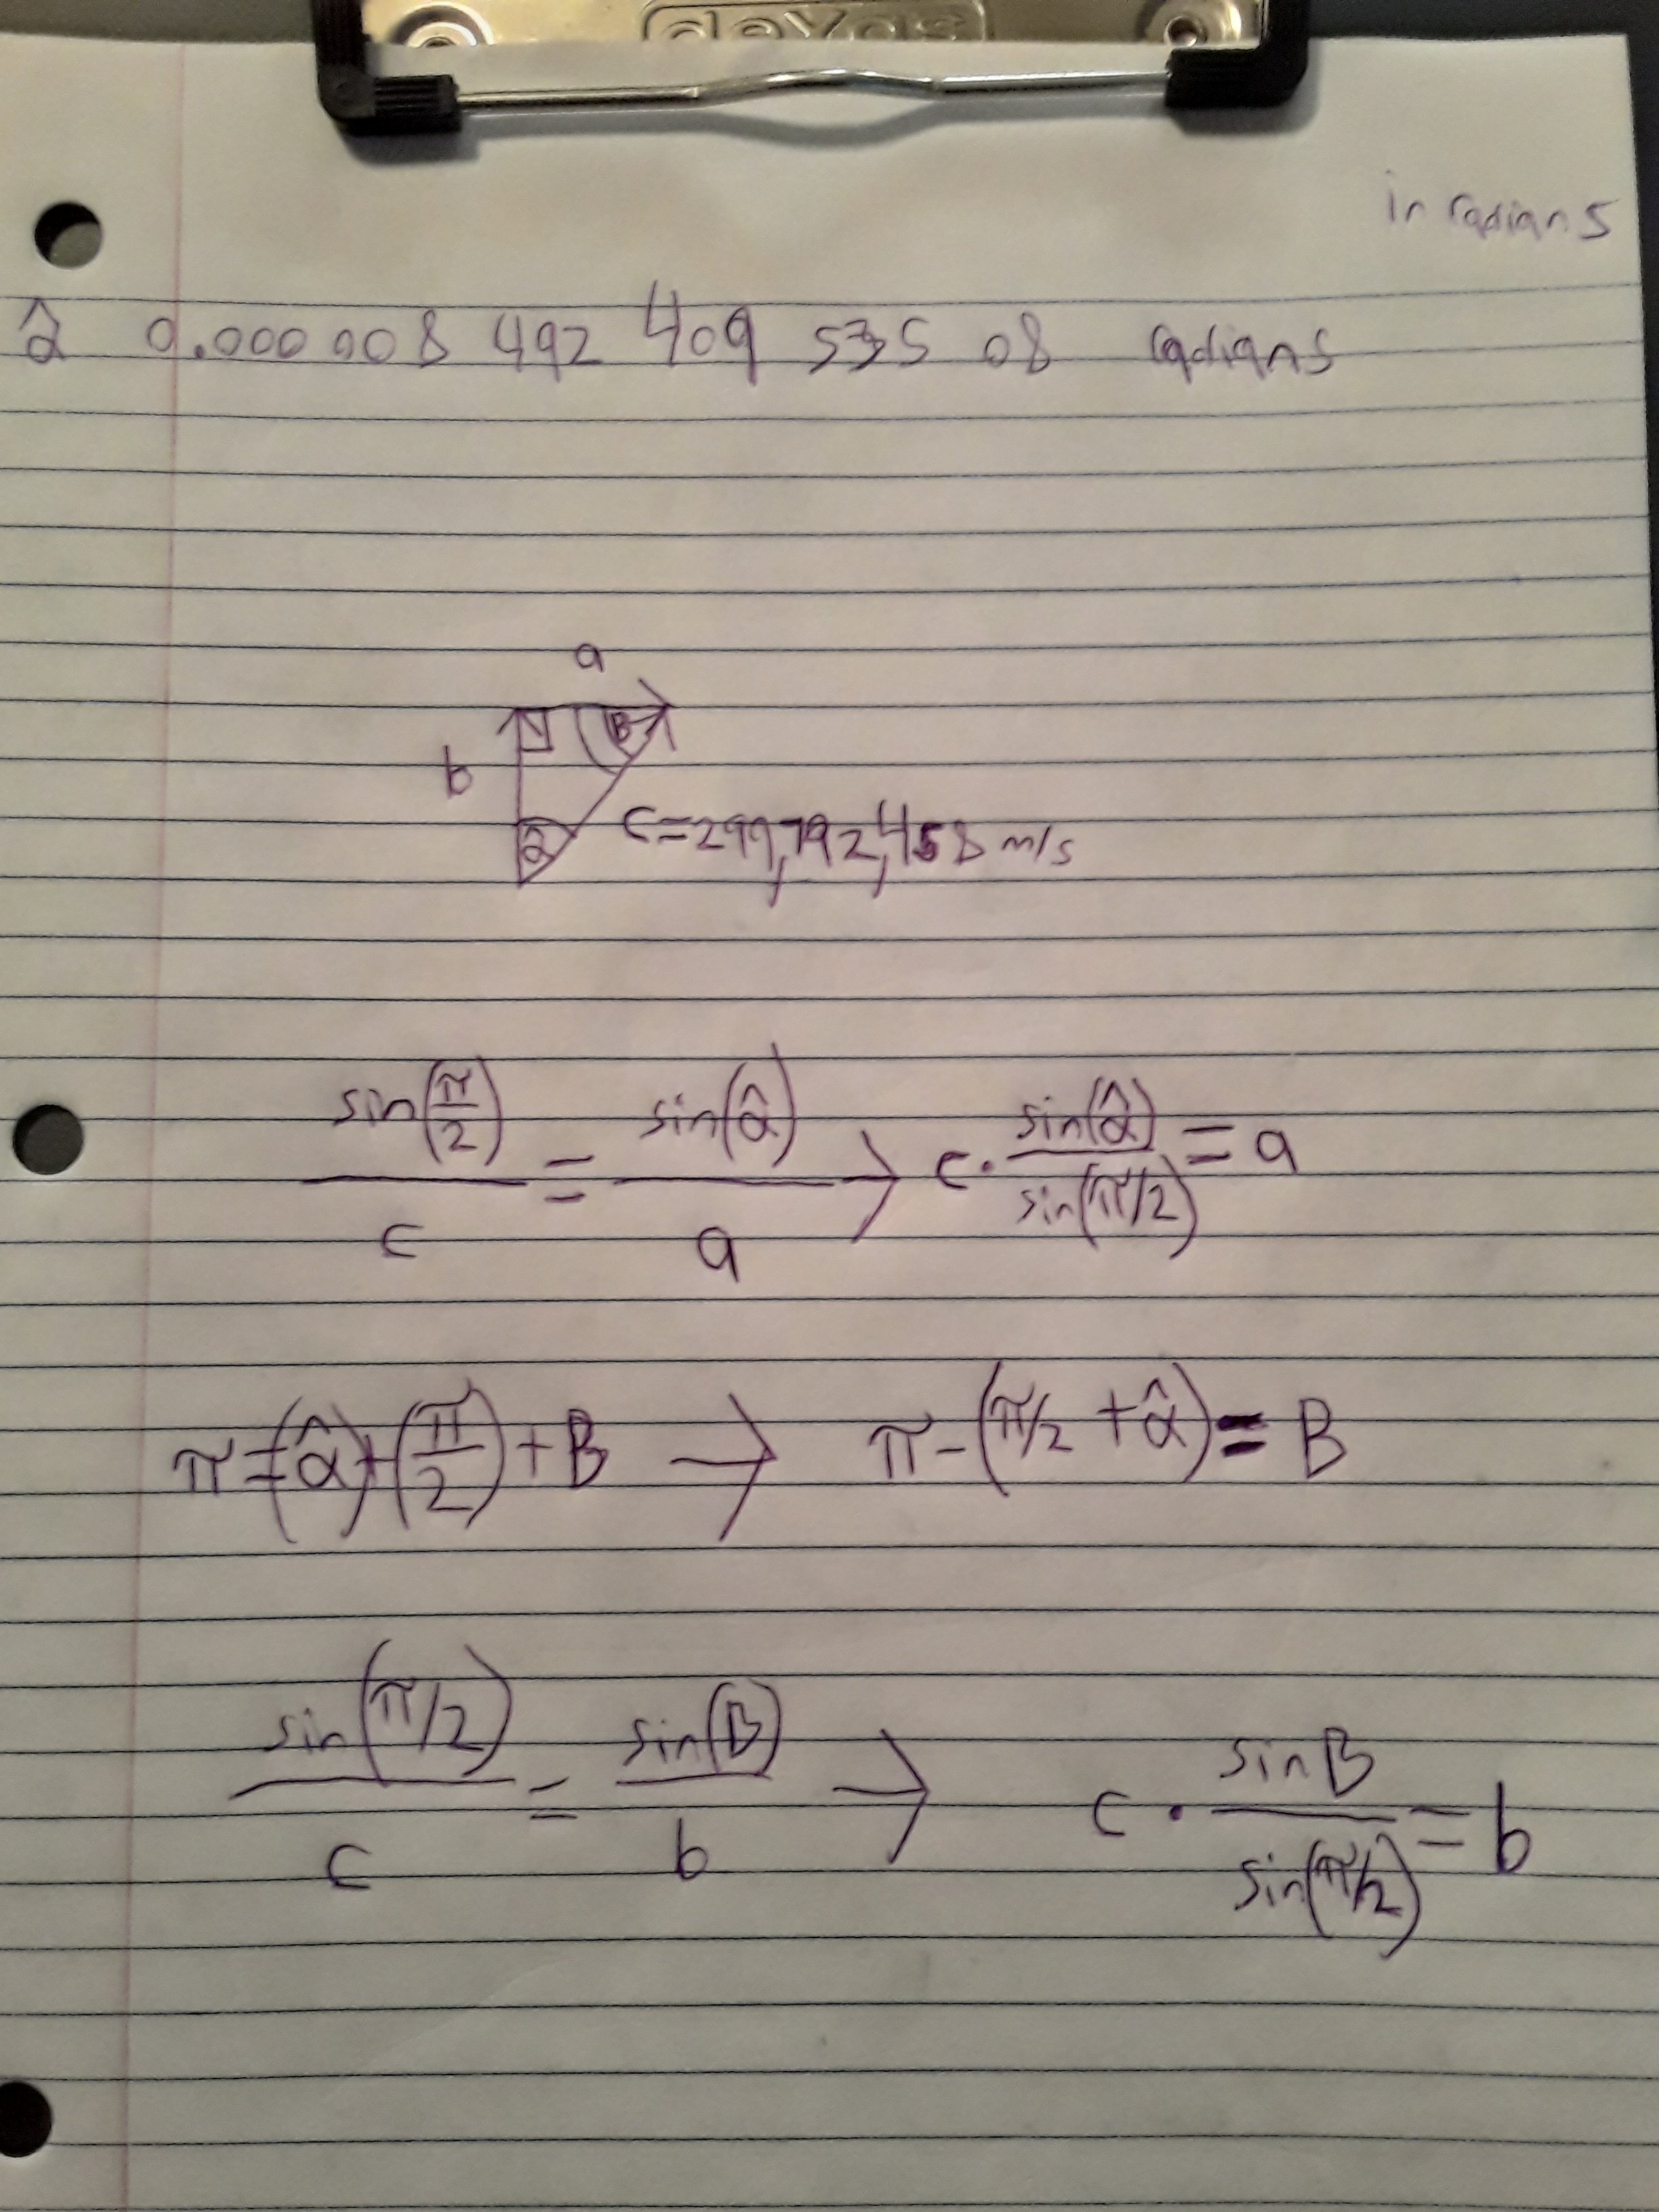 deVas
in radians
α̂ 0.000 008 492 409 535 08 radians
a
b
B
α̂
c=299,792,458 m/s
sin(π/2)/c = sin(α̂)/a → c · sin(α̂)/sin(π/2) = a
π=(α̂)+(π/2)+B → π-(π/2 +α̂)= B
sin(π/2)/c = sin(B)/b → c · sin B/sin(π/2) = b